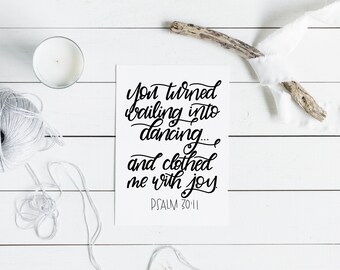 you turned
wailing into
dancing...
and clothed
me with joy
PSALM 30:11